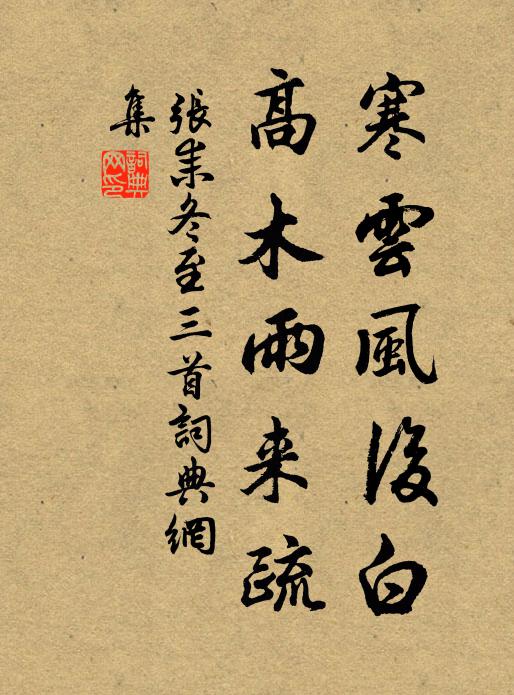 寒雲風後白
高木雨来疏
張耒冬至三首詞典網
集
詞典網印